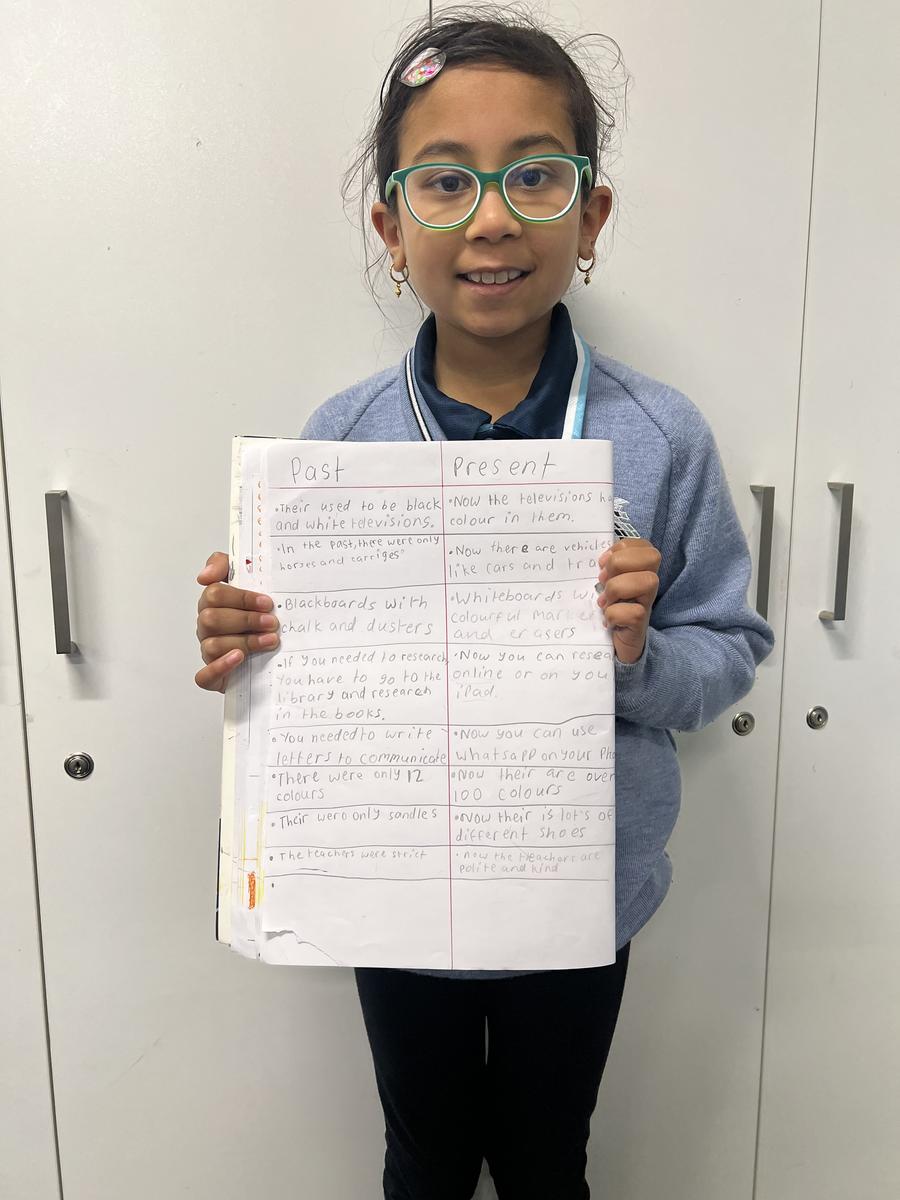 Past
Present
•Their used to be black
and white televisions.
•Now the televisions
colour in them.
•In the past, there were only
horses and carriges
•Now there are vehicles
like cars and
•Blackboards with
chalk and dusters
•Whiteboards
colourful
and erasers
•If you needed to research
you have to go to the
library and research
in the books.
•Now you can
online or on you
iPad.
•You needed to write
letters to communicate
•Now you can use
whatsapp on your
•There were only 12
colours
•Now their are over
100 colours
•Their were only sandles
•Now their is lot's of
different shoes
•The teachers were strict
•now the teachers are
polite and kind
•